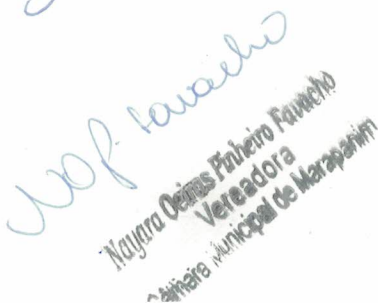 NOP. Favacho
Nayara Oeiras Pinheiro Favacho
Vereadora
Câmara Municipal de Marapanim